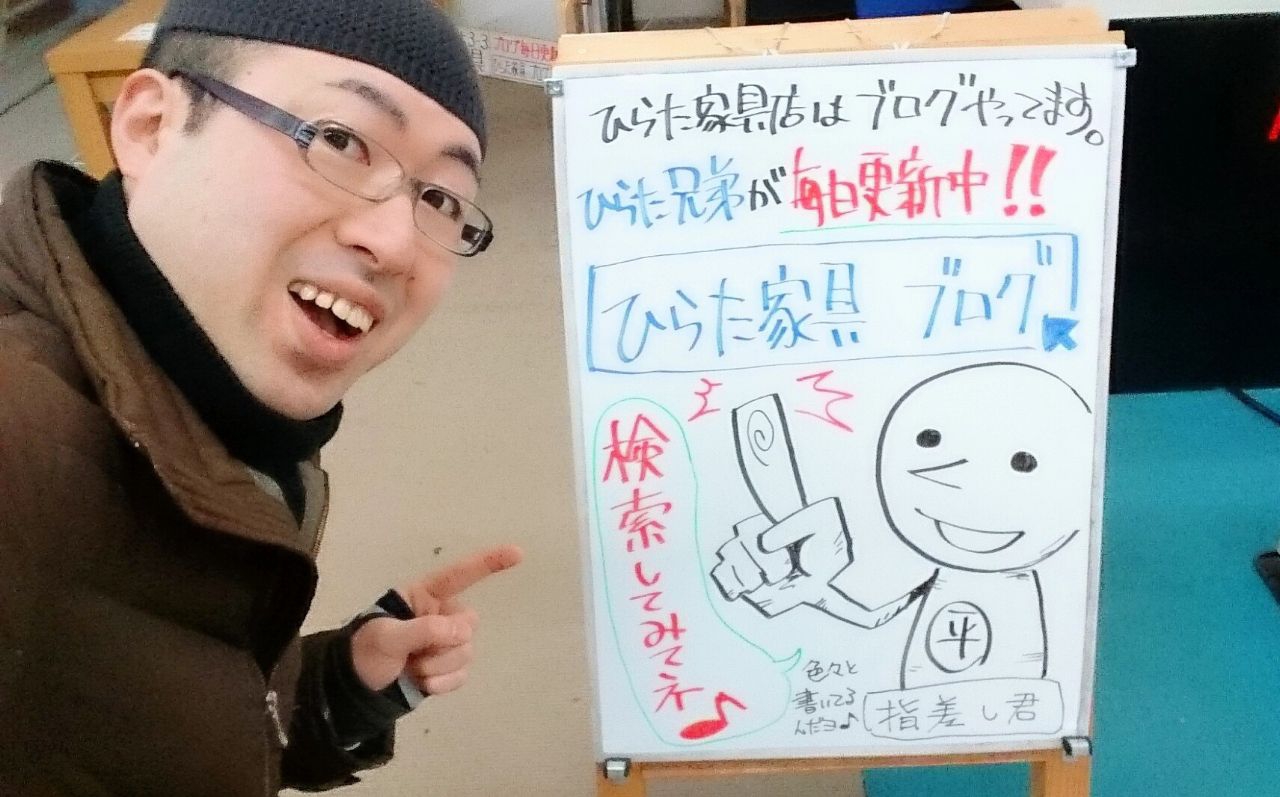 ひらた家具店はブログやってます。
ひらた兄弟が毎日更新中!!
ひらた家具 ブログ
検索してみてネ♪
平
色々と
書いてる
んだヨ♪
指差し君
ブログ毎日更新